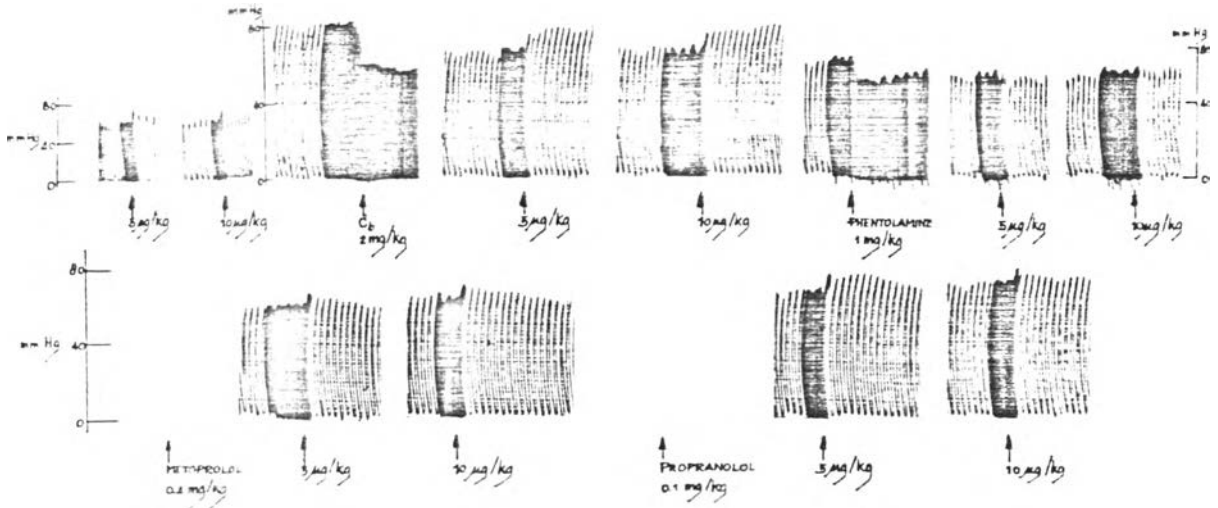 mm Hg
80
40
0
mm Hg
80
40
0
5 µg/kg
10 µg/kg
C6
2 mg/kg
5 µg/kg
10 µg/kg
PHENTOLAMINE
1 mg/kg
5 µg/kg
10 µg/kg
mm Hg
80
40
0
mm Hg
80
40
0
METOPROLOL
mg/kg
5 µg/kg
10 µg/kg
PROPRANOLOL
0.1 mg/kg
5 µg/kg
10 µg/kg